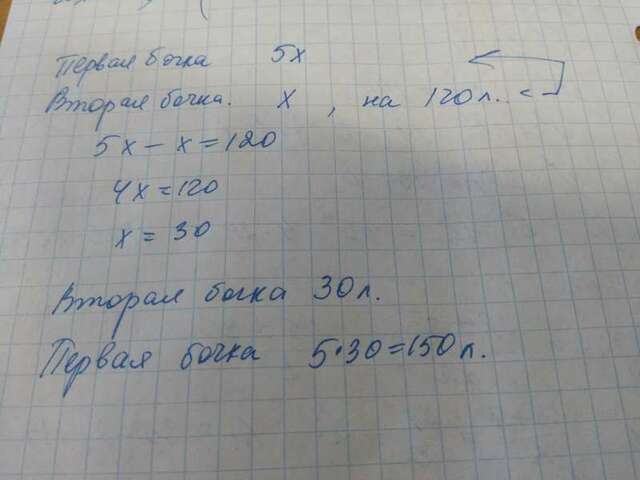 Первая бочка 5х
Вторая бочка. х , на 120 л. <
5х - х = 120
4х = 120
х = 30
Вторая бочка 30 л.
Первая бочка 5·30=150 л.